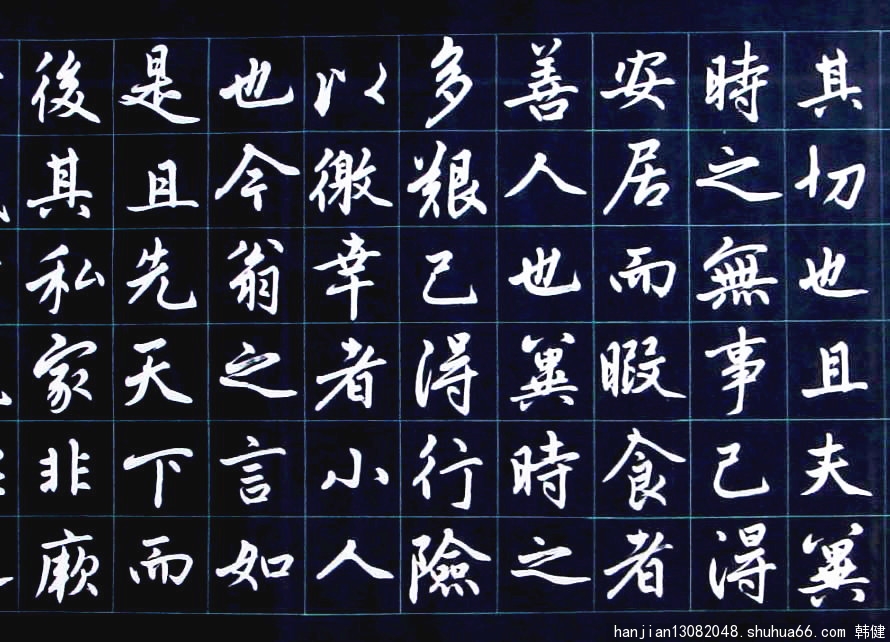 其切也且夫冀
時之無事己得
安居而暇食者
善人也冀時之
多艱己得行險
以徼幸者小人
也今翁之言如
是且先天下而
後其私家非厥
hanjian13082048.shuhua66.com 韩健